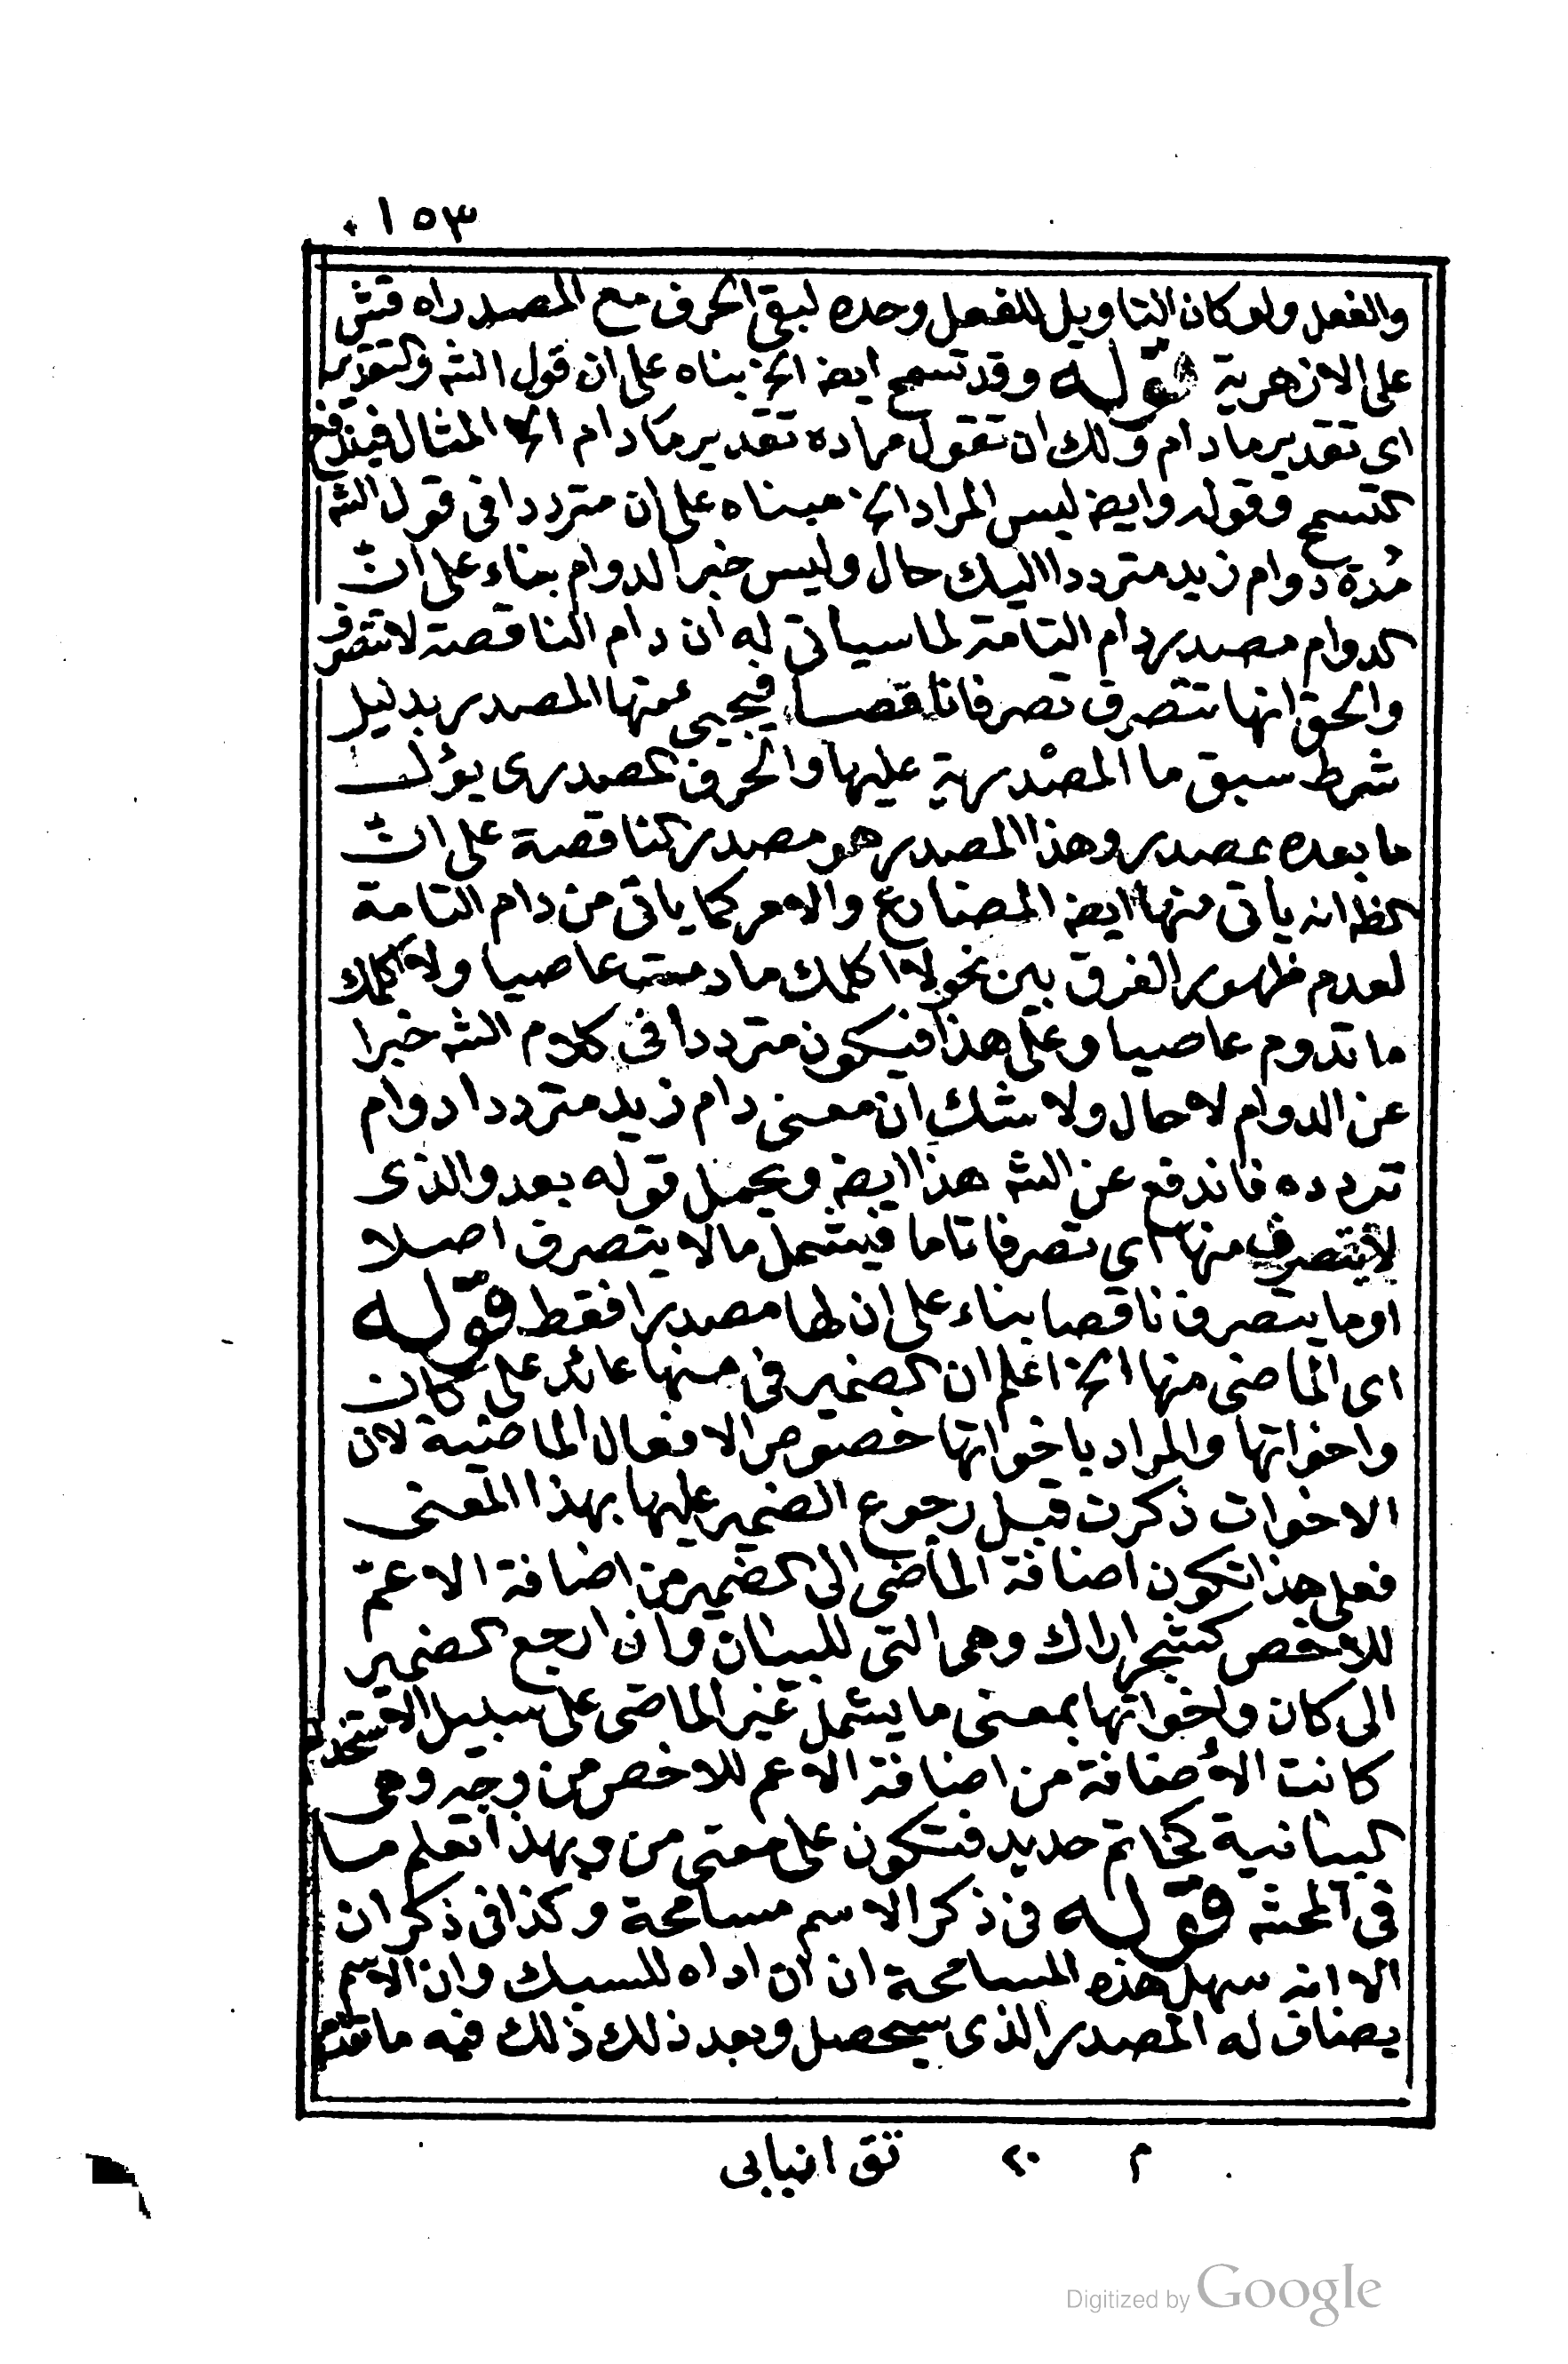 ١٥٣
والفعل ولو كان التاويل للفعل وحده لبقى الحرف مع المصدر اه قتش
على الازهرية قوله وقد تسمح ايضا الخ بناه على ان قول الشه والتقدير
اى تقدير مادام ولك ان تقول مراده تقدير مادام الخ المثال فيندفع
التسمح وقوله وايضا ليس المراد الخ مبناه على ان مترددا فى قول الشه
مدة دوام زيد مترددا اليك حال وليس خبرا لدوام بناء على ان
الدوام مصدر دام التامة لما سياتى له ان دام الناقصة لا تتصرف
والحق انها تتصرف تصرفا ناقصا فيجيى منها المصدر بدليل
شرط سبق ما المصدرية عليها والحرف المصدرى يؤل
ما بعده بمصدر وهذا المصدر هو مصدر الناقصة على ان
الظ انه ياتى منها ايضا المضارع والامر كما ياتى من دام التامة
لعدم ظهور الفرق بين نحو لا اكلمك مادمت عاصيا ولا اكلمك
ما تدوم عاصيا وعلى هذا فيكون مترددا فى كلام الشه خبرا
عن الدوام لا حال ولا شك ان معنى دام زيد مترددا دوام
تردده فاندفع عن الشه هذا ايضا ويحمل قوله بعد والذى
لا يتصرف منها اى تصرفا تاما فيشمل مالا يتصرف اصلا
او ما يتصرف ناقصا بناء على ان لها مصدرا فقط قوله
اى الماضى منها الخ اعلم ان الضمير فى منها عائد على كان
واخواتها والمراد باخواتها خصوص الافعال الماضية لان
الاخوات ذكرت قبل رجوع الضمير عليها بهذا المعنى
فعلى هذا تكون اضافة الماضى الى الضمير من اضافة الاعم
للاخص كشجر اراك وهى التى للبيان وان ارجع الضمير
الى كان واخواتها بمعنى ما يشمل غير الماضى على سبيل الاستخدام
كانت الاضافة من اضافة الاعم للاخص من وجه وهى
البيانية كخاتم حديد فتكون على معنى من وبهذا تعلم ما
فى المحشه قوله فى ذكر الاسم مسامحة وكذا فى ذكر ان
الا انه سهل هذه المسامحة ان ان اداه للسبك وان الاسم
يضاف له المصدر الذى سيحصل وبعد ذلك ذلك فيه ما تقدم
م ٢٠ تق انبابى
Digitized by Google